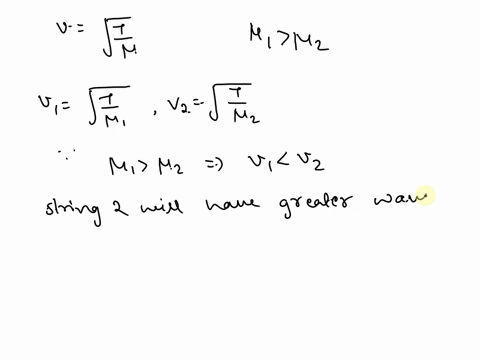 v = √(T/μ) μ₁ > μ₂
v₁ = √(T/μ₁) , v₂ = √(T/μ₂)
∵ μ₁ > μ₂ ⇒ v₁ < v₂
string 2 will have greater wave